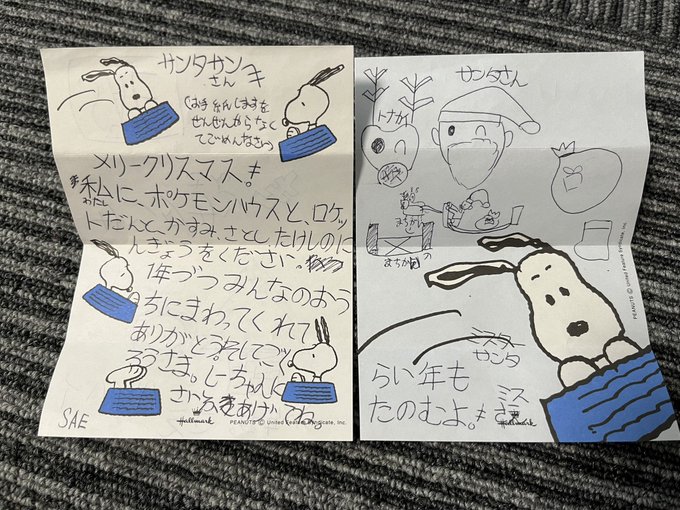 サンタサン
さん
(お手紙しますを
ぜんぜんからなく
てごめんなさい)
メリークリスマス!
私に、ポケモンハウスと、ロケッ
わたし
トだんと、かすみ、さとし、たけしのに
んぎょうをください。
1年づつみんなのおう
ちにまわってくれて
ありがとう。そしてごく
ろうさま。しーちゃんに
さい
あげてね
SAE
Hallmark
PEANUTS © United Feature Syndicate, Inc.
サンタさん
トナカイ
まちがい
の
まちがい
PEANUTS © United Feature Syndicate, Inc.
ミスター
サンタ
らい年も
たのむよ。!
ミス
Hallmark